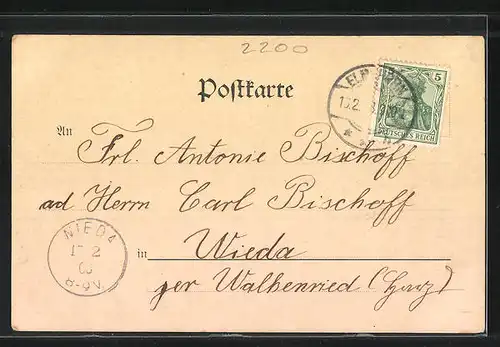 2200
Postkarte
5
DEUTSCHES REICH
An
Frl. Antonie Bischoff
ad Herrn Carl Bischoff
in Wieda
per Walkenried (Harz)